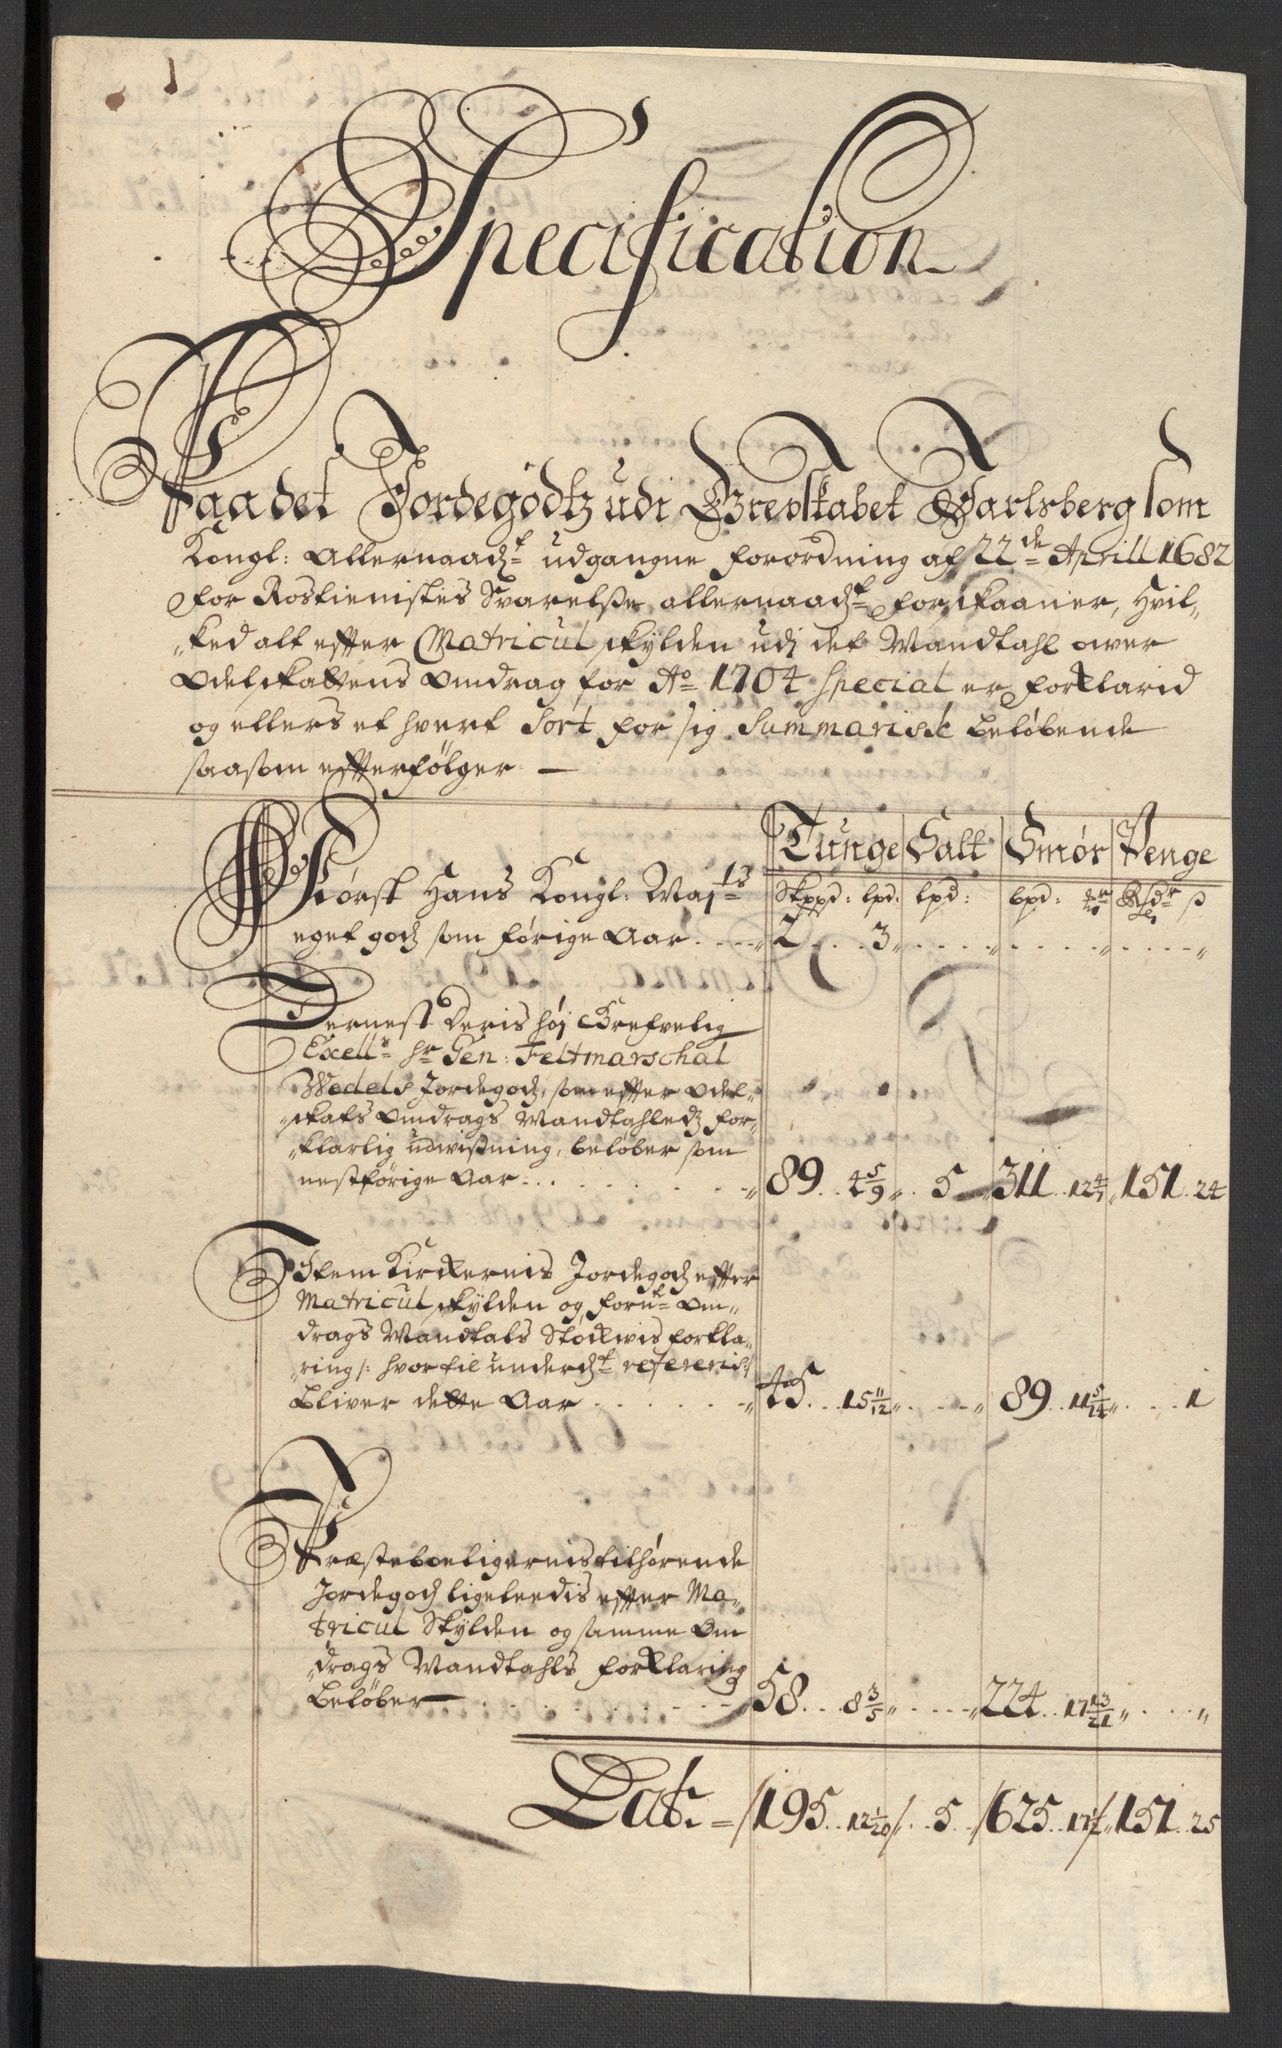 Specification
Paa det Jordegodtz udi Grevskabet Jarlsberg som
Kongl: Allernaadt udgangne forordning af 22de Aprill 1682
for Rostienistes Svarelsse allernaadt forskaaner, Hvil„
„ked alt efter Matricul skylden udi det Mandtahl over
Odelskattens Omdrag for Ao 1704 Special er forklarid
og ellers et hvert Sort for sig Summarisk beløbende
saasom efterfølger —
Tunge Salt Smør Penge
Skppd: lpd: lpd: bpd: mr Rdr ß
Først Hans Kongl: Mayts
eget godz som førige Aar . . . . „ 2 . . . 3 „ . . . . „ . . . . „ . . . . „
Dernest Deris høj Grefvelig
Excells hr Gen: Feltmarschal
Wedels Jordegodz, som efter Odel„
„skats Omdrags Mandtahledz for„
„klarlig udwissning, beløber som
nestførige Aar . . . . . . „ 89 . . 4 5/9 „ . . 5 „ 311 . . 12 4/7 „ 151 . 24
Item Kirkernis Jordegodz efter
Matricul skylden og forne Om„
„drags Mandtals Stockvis forkla„
„ring /: hvortil underdt refereris :/
bliver dette Aar . . . . . „ 45 . . 15 11/12 „ . . . „ 89 . . 11 5/14 „ . . . 1
Præsteboeligernis tilhørende
Jordegodz ligeleedis efter Ma„
„tricul Skylden og samme Om
„drags Mandtahls forklaring
beløber — . . . . . . „ 58 . . 8 3/5 „ . . . . „ 224 . . 17 13/21 „ . . . „
Lat. = /195 . . 12 1/20 / . . 5 . /625 . . 17 1/2 / „ 151 . 25